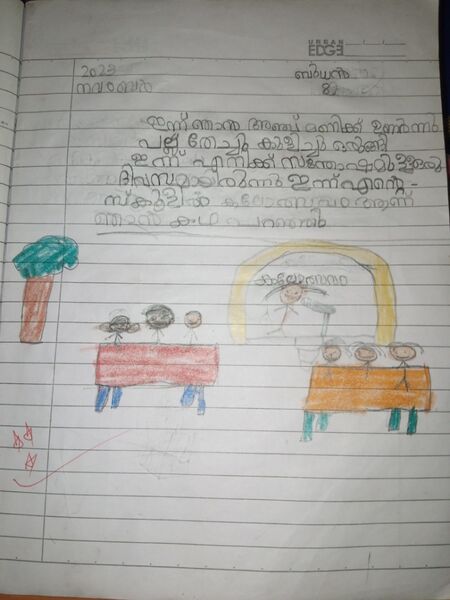 URBAN
EDGE
2023
നവംബർ
ബുധൻ
8
ഇന്ന് ഞാൻ അഞ്ച് മണിക്ക് ഉണർന്നു
പല്ല് തേച്ചും കുളിച്ചും ഒരുങ്ങി
ഇന്ന് എനിക്ക് സന്തോഷമുള്ളരു
ദിവസമായിരുന്നു ഇന്ന് എന്റെ
സ്കൂളിൽ കലോത്സവം ആണ്
ഞാൻ കഥ പറഞ്ഞു
കലോത്സവം